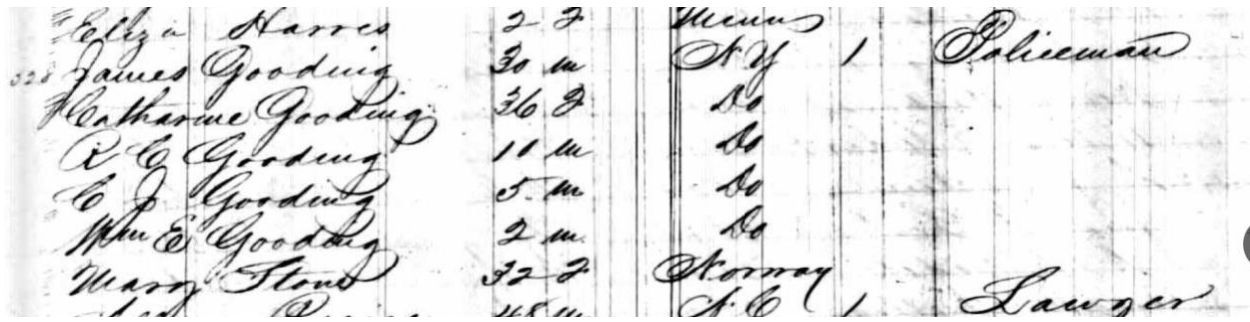 Eliza Harris 2 F Minn
328 James Gooding 30 m N Y 1 Policeman
Catharine Gooding 36 F Do
R E Gooding 10 m Do
C J Gooding 5 m Do
Wm E Gooding 2 m Do
Mary Stone 32 F Norway
48 m N C 1 Lawyer